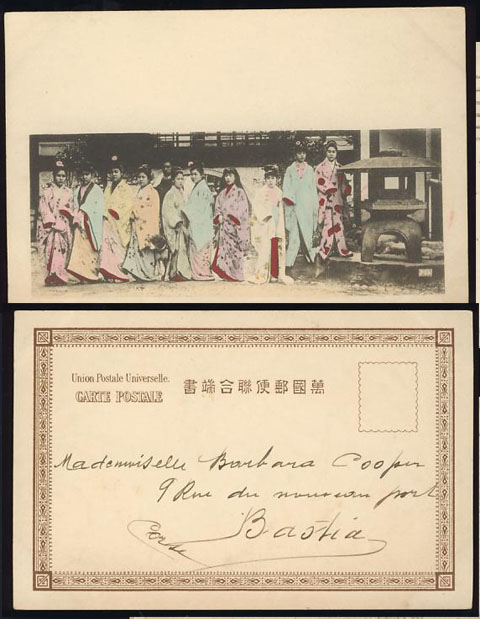 Union Postale Universelle.
CARTE POSTALE
書端合聯便郵國萬
Mademoiselle Barbara Cooper
9 Rue du nouveau port
Bastia
Corse